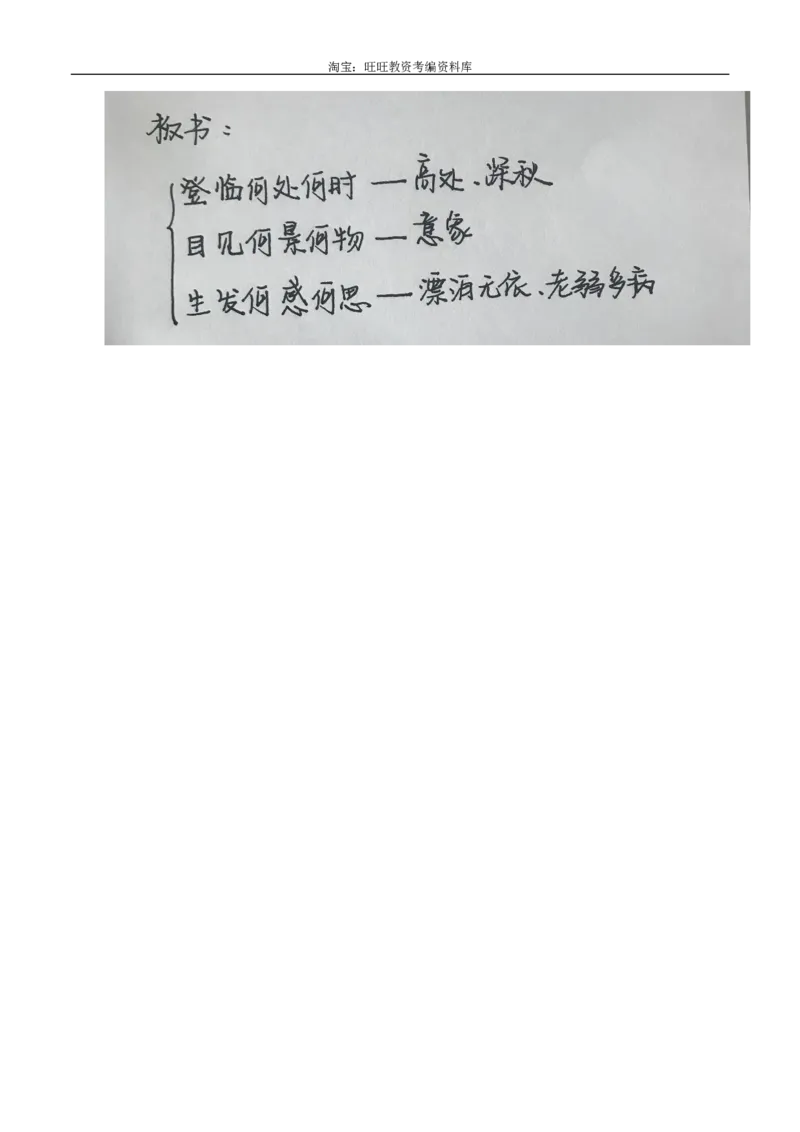 淘宝：旺旺教资考编资料库
板书：
登临何处何时 — 高处、深秋
目见何景何物 — 意象
生发何感何思 — 漂泊无依、老弱多病